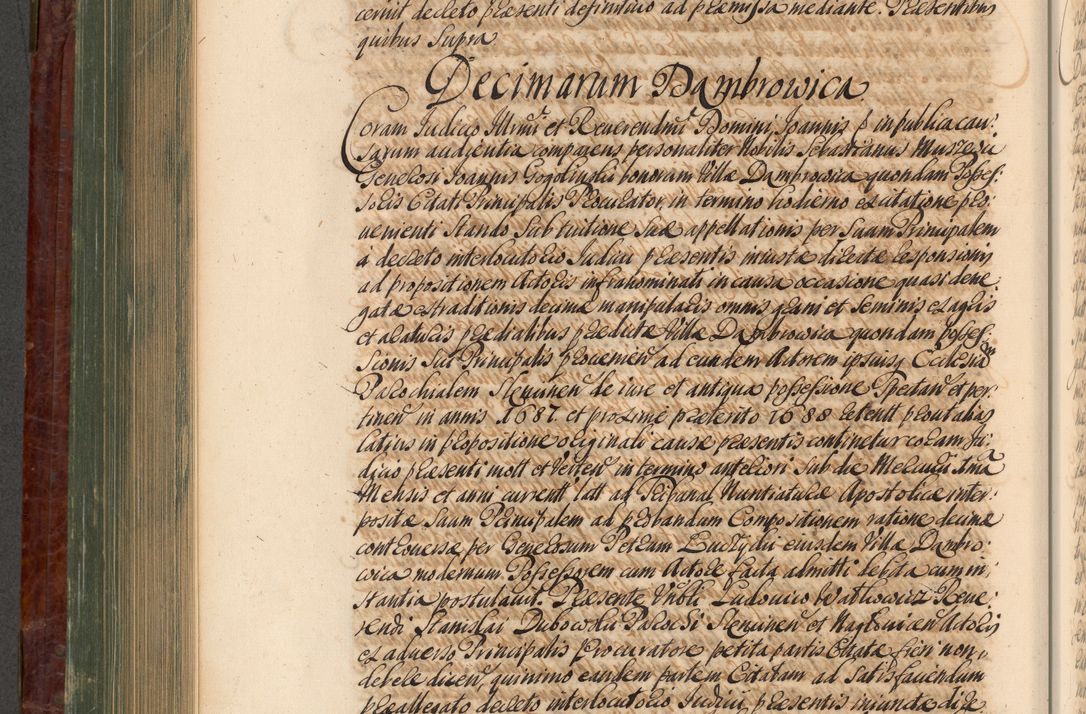 cernit decreto præsenti definitivo ad præmissa mediante. Præsentibus
quibus Supra
Decimarum Dambrowica
Coram Judicio Illrmi et Reverendmi Domini Joannis in publica cau:
sarum audientia comparens personaliter Nobilis Sebastianus
Generosi Joannis bonorum Villæ Dambrowica quondam Posses:
soris Citati Principalis Procurator, in termino hodierno ex citatione pro:
venienti Stando Sub tuitione Suæ appellationis per Suum Principalem
a decreto interlocutorio Judicii præsentis iniunctæ directæ responsionis
ad propositionem Actoris infranominati in causa occasione quasi dene:
gatæ extraditionis decimæ manipularis omnis grani et Seminis ex agris
et araturis prædialibus prædictæ Villæ Dambrowica quondam posses:
sionis Sui Principalis provenien ad eundem Actorem ipsiusq Ecclesiam
Parochialem de iure et antiqua possessione Spectan et per:
tinen in annis 1687 et proxime præterito 1688 retent prout alias
latius in propositione originali causæ præsentis continetur coram Ju:
dicio præsenti mott et verten in termino anteriori Sub die Mercurii 1ma
Mensis et anni current latt ad Tribunal Nuntiaturæ Apostolicæ inter:
positæ Suum Principalem ad probandum Compositionem ratione decimæ
controversæ per Generosum Petrum eiusdem Villæ Dambro:
wica modernum Possessorem cum Actore facta admitti debita cum in:
stantia postulavit. Præsente Nobli Ludovico Reve:
rendi Stanislai Parochi et Actoris
ex adverso Principalis Procuratore petita partis Citatæ fieri non
debere dicen, quinimo eandem partem Citatam ad Satisfaciendum
præallegato decreto interlocutorio Judicii præsentis